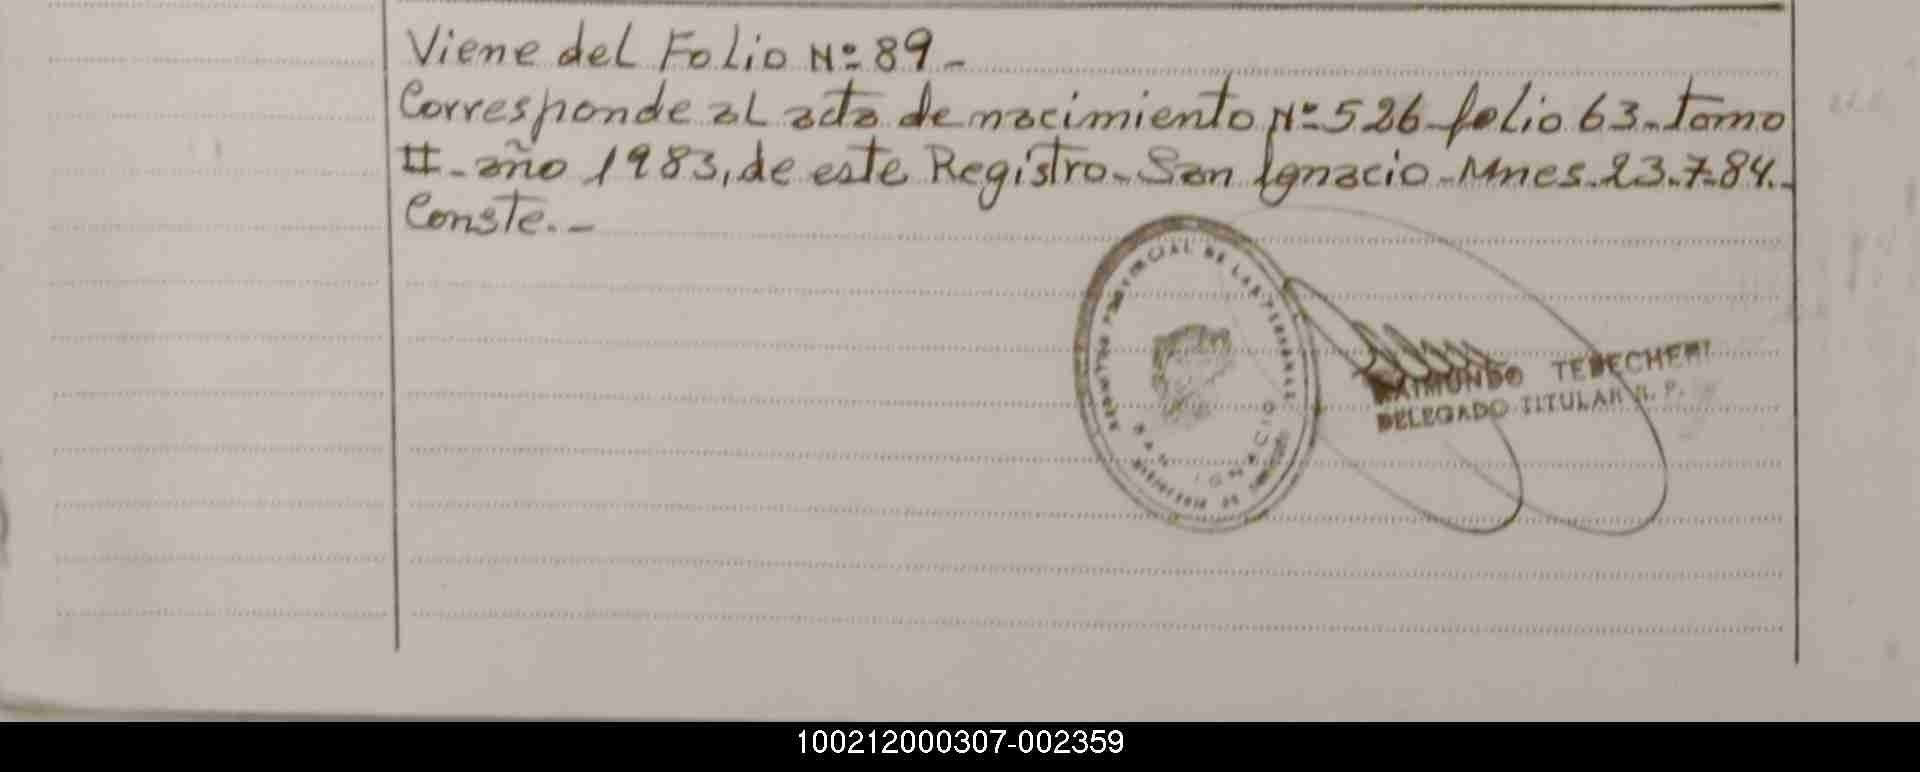 Viene del Folio Nº 89.-
Corresponde al acta de nacimiento Nº 526 folio 63.- Tomo
II - año 1983, de este Registro.- San Ignacio - Mnes. 23.7.84.-
Conste.-
PROVINCIAL DE LAS PERSONAS
SAN IGNACIO
RAIMUNDO TEDECHERI
DELEGADO TITULAR R. P.
100212000307-002359